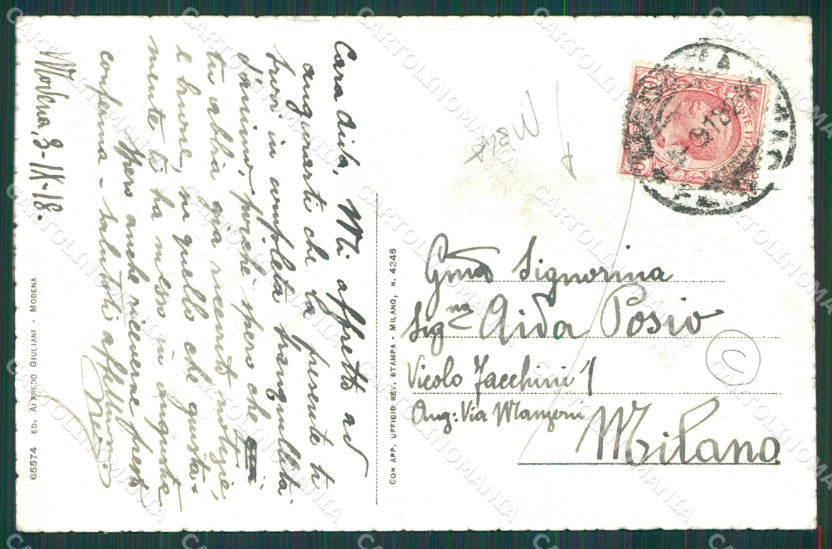 Modena, 3-IX-18.
Cara Aida, Mi affretto ad
augurarti che la presente ti
trovi in completa tranquillità
d'animo, poiché spero che
tu abbia già ricevuto notizie,
e buone, in quello che giusta-
mente ti ha messo in angustia
Spero anche riceverne presto
conferma - Saluti affettuosi
65574 ED. ALFREDO GIULIANI - MODENA
CON APP. UFFICIO REV. STAMPA - MILANO, N. 4246
POSTE ITALIANE
Gma Signorina
Signa Aida Posio
Vicolo Facchini 1
Ang: Via Manzoni
Milano
C
CARTOLINOMANIA